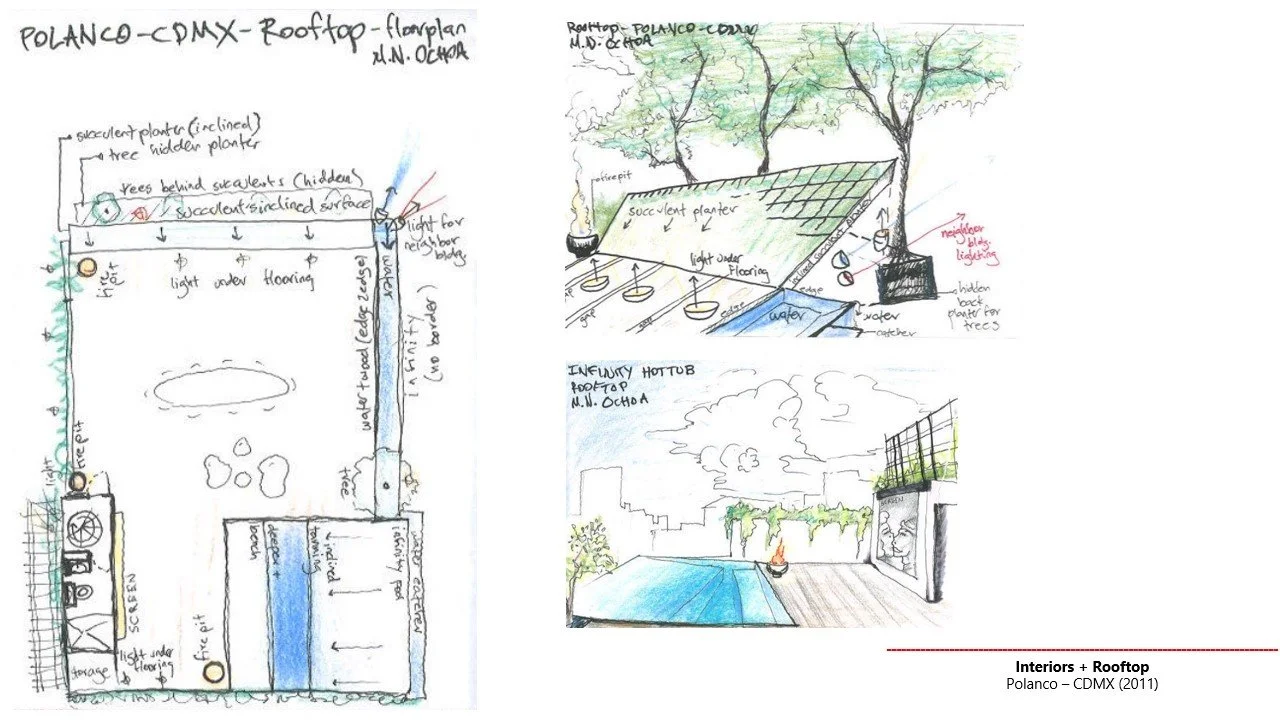 POLANCO-CDMX-Rooftop-floorplan
M.N. OCHOA
succulent planter (inclined)
tree hidden planter
trees behind succulents (hidden)
succulents inclined surface
light for
neighbor
bldgs
fire pit
light under flooring
water
water+wood (edge 2 edge)
infinity
(no border)
fire pit
light
tree
SCREEN
storage
light under
flooring
fire pit
bench
deeper +
tanning
inclined
infinity pool
water catcher
Rooftop-POLANCO-CDMX
M.N. OCHOA
firepit
succulent planter
light under
flooring
inclined succulent planter
neighbor
bldg.
lighting
gap
gap
edge
edge
water
water
catcher
hidden
back
planter for
trees
INFINITY HOTTUB
ROOFTOP
M.N. OCHOA
SCREEN
Interiors + Rooftop
Polanco – CDMX (2011)